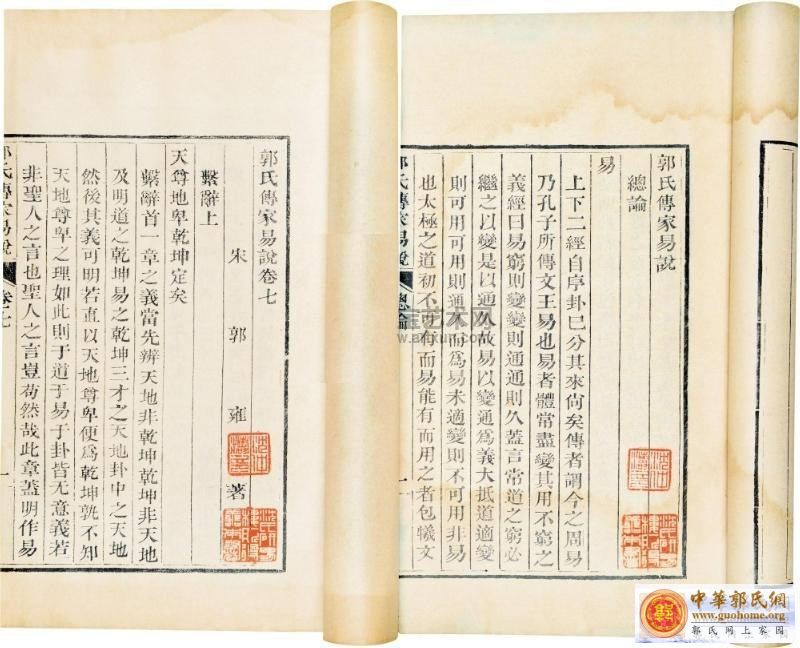 郭氏傳家易說
總論
易
上下二經自序卦已分其來尙矣傳者謂今之周易
乃孔子所傳文王易也易者體常盡變其用不窮之
義經曰易窮則變變則通通則久蓋言常道之窮必
繼之以變是以通久故易以變通爲義大抵道適變
則可用可用則通久而爲易未適變則不可用非易
也太極之道初不可有而易能有而用之者包犧文
郭氏傳家易說
總論
郭氏傳家易說卷七
宋 郭 雍 著
繫辭上
天尊地卑乾坤定矣
繫辭首一章之義當先辨天地非乾坤乾坤非天地
及明道之乾坤易之乾坤三才之天地卦中之天地
然後其義可明若直以天地尊卑便爲乾坤孰不知
天地尊卑之理如此則于道于易于卦皆无意義若
非聖人之言也聖人之言豈苟然哉此章蓋明作易
郭氏傳家易說
卷七
一
中華郭氏網
www.guohome.org
郭氏網上家園